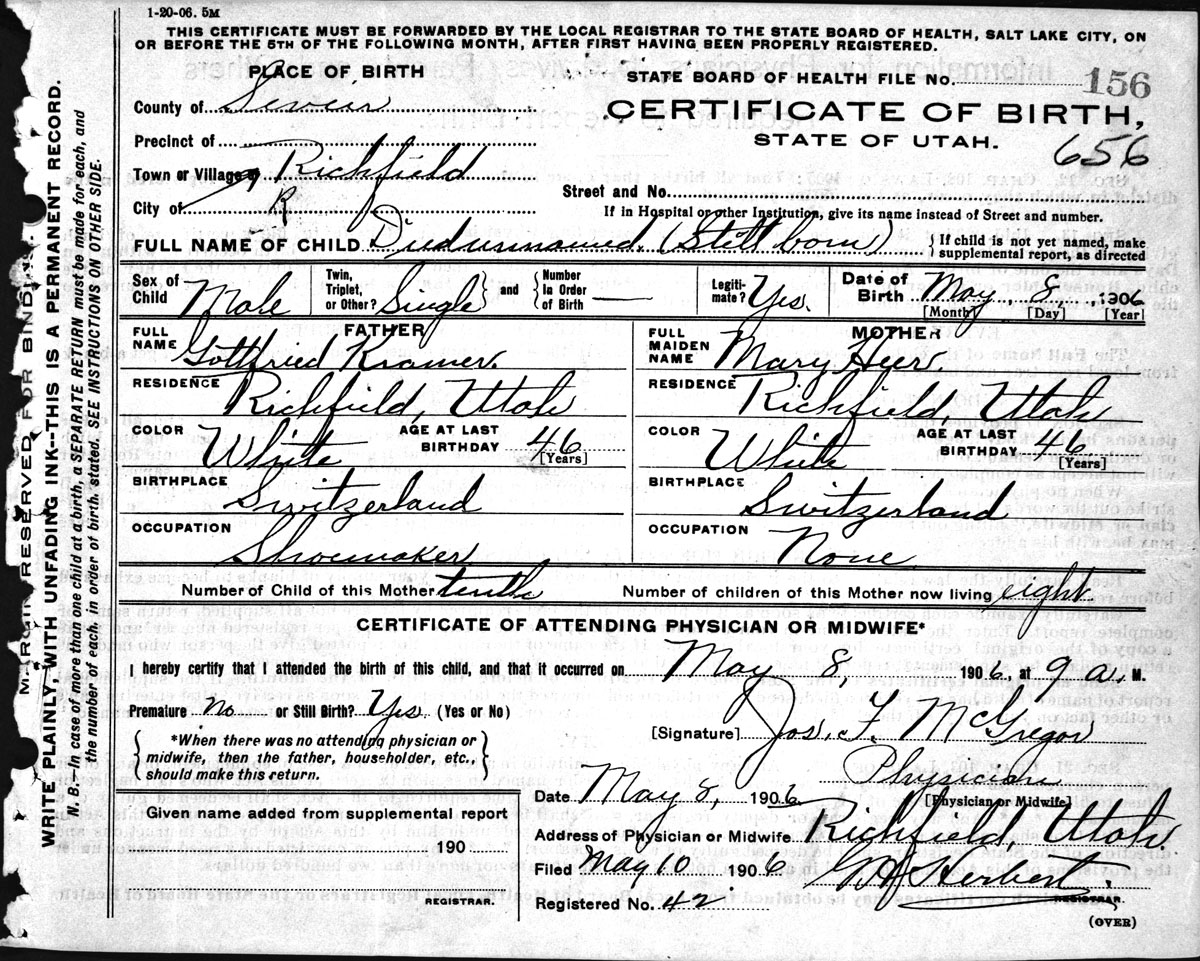 1-20-06. 5M
THIS CERTIFICATE MUST BE FORWARDED BY THE LOCAL REGISTRAR TO THE STATE BOARD OF HEALTH, SALT LAKE CITY, ON
OR BEFORE THE 5TH OF THE FOLLOWING MONTH, AFTER FIRST HAVING BEEN PROPERLY REGISTERED.
PLACE OF BIRTH
STATE BOARD OF HEALTH FILE No. 156
County of Sevier
CERTIFICATE OF BIRTH,
Precinct of
STATE OF UTAH.
656
Town or Village of Richfield
Street and No.
City of R
If in Hospital or other Institution, give its name instead of Street and number.
FULL NAME OF CHILD Died unnamed. (Still born) {If child is not yet named, make
supplemental report, as directed
Sex of Child Male Twin, Triplet, or Other? Single} and {Number In Order of Birth — Legiti-mate? Yes. Date of Birth May 8, 1906
[Month] [Day] [Year]
FATHER
FULL NAME Gottfried Kramer.
MOTHER
FULL MAIDEN NAME Mary Heer.
RESIDENCE Richfield, Utah
RESIDENCE Richfield, Utah
COLOR White AGE AT LAST BIRTHDAY 46 [Years]
COLOR White AGE AT LAST BIRTHDAY 46 [Years]
BIRTHPLACE Switzerland
BIRTHPLACE Switzerland
OCCUPATION Shoemaker
OCCUPATION None
Number of Child of this Mother tenth Number of children of this Mother now living eight
CERTIFICATE OF ATTENDING PHYSICIAN OR MIDWIFE*
I hereby certify that I attended the birth of this child, and that it occurred on May 8, 1906, at 9 a. M.
Premature No or Still Birth? Yes (Yes or No)
[Signature] Jos. F. McGregor
{*When there was no attending physician or
midwife, then the father, householder, etc.,
should make this return.}
Physician
Date May 8, 1906 [Physician or Midwife]
Given name added from supplemental report
190
REGISTRAR.
Address of Physician or Midwife Richfield, Utah.
Filed May 10 1906 Herbert.
REGISTRAR.
Registered No. 42
(OVER)
MARGIN RESERVED FOR BINDING.
WRITE PLAINLY WITH UNFADING INK--THIS IS A PERMANENT RECORD.
N. B.--In case of more than one child at a birth, a SEPARATE RETURN must be made for each, and
the number of each, in order of birth, stated. SEE INSTRUCTIONS ON OTHER SIDE.